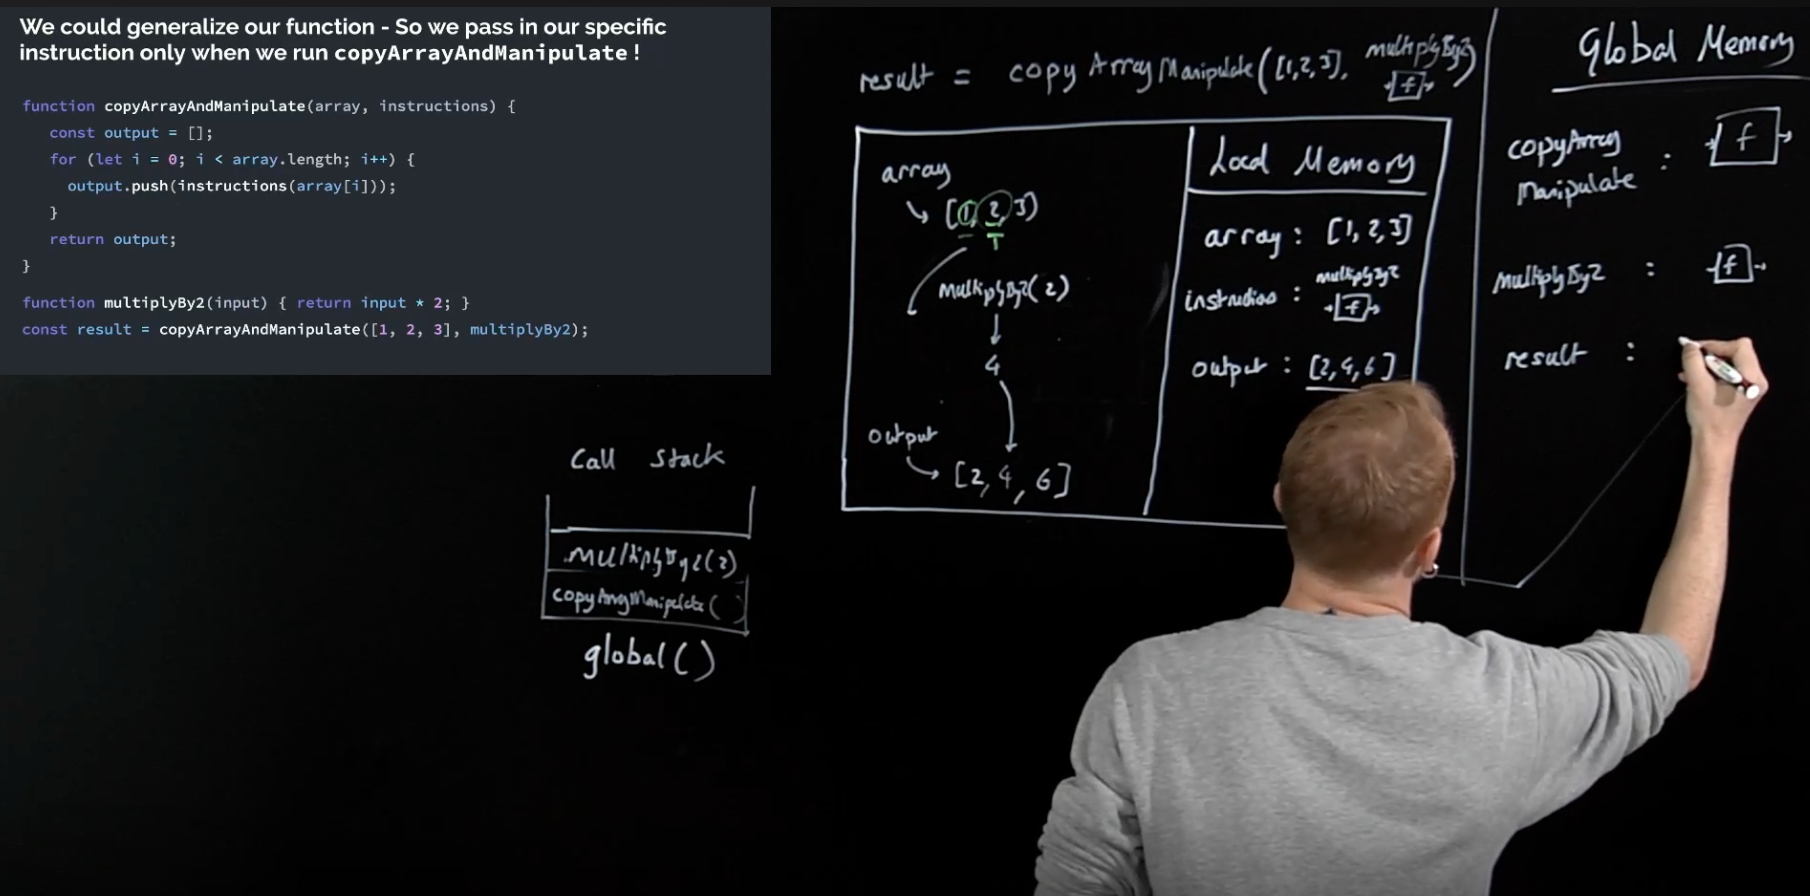 We could generalize our function - So we pass in our specific
instruction only when we run copyArrayAndManipulate !
function copyArrayAndManipulate(array, instructions) {
const output = [];
for (let i = 0; i < array.length; i++) {
output.push(instructions(array[i]));
}
return output;
}
function multiplyBy2(input) { return input * 2; }
const result = copyArrayAndManipulate([1, 2, 3], multiplyBy2);
result = copyArrayManipulate([1,2,3], multiplyBy2)
f
array
[1, 2, 3]
multiplyBy2(2)
4
output
[2, 4, 6]
Local Memory
array : [1, 2, 3]
multiplyBy2
instructions : f
output : [2, 4, 6]
Global Memory
copyArray
Manipulate : f
multiplyBy2 : f
result :
Call Stack
multiplyBy2(2)
copyArrayManipulate( )
global()